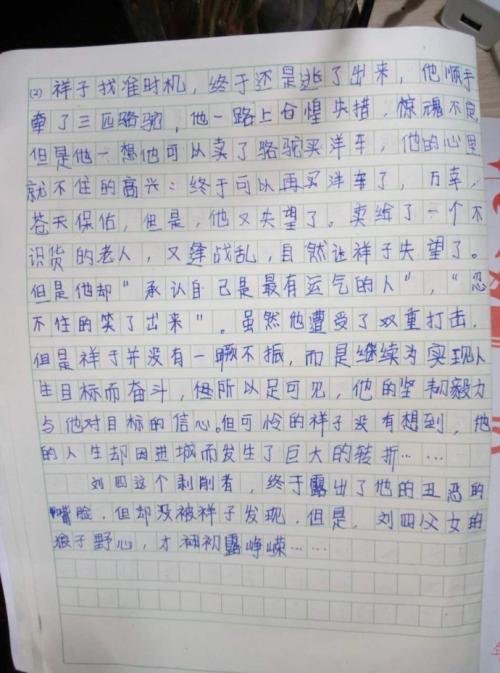 (2) 祥子找准时机，终于还是逃了出来，他顺手
牵了三匹骆驼，他一路上仓惶失措，惊魂不定
但是他一想他可以卖了骆驼买洋车，他的心里
就不住的高兴：终于可以再买洋车了，万幸，
苍天保佑，但是，他又失望了。卖给了一个不
识货的老人，又逢战乱，自然让祥子失望了。
但是他却"承认自己是最有运气的人"，"忍
不住的笑了出来"。虽然他遭受了双重打击，
但是祥子并没有一蹶不振，而是继续为实现人
生目标而奋斗，所以足可见，他的坚韧毅力
与他对目标的信心。但可怜的祥子没有想到，他
的人生却因进城而发生了巨大的转折……
刘四这个剥削者，终于露出了他的丑恶的
嘴脸，但却没被祥子发现，但是，刘四父女的
狼子野心，才初露峥嵘……